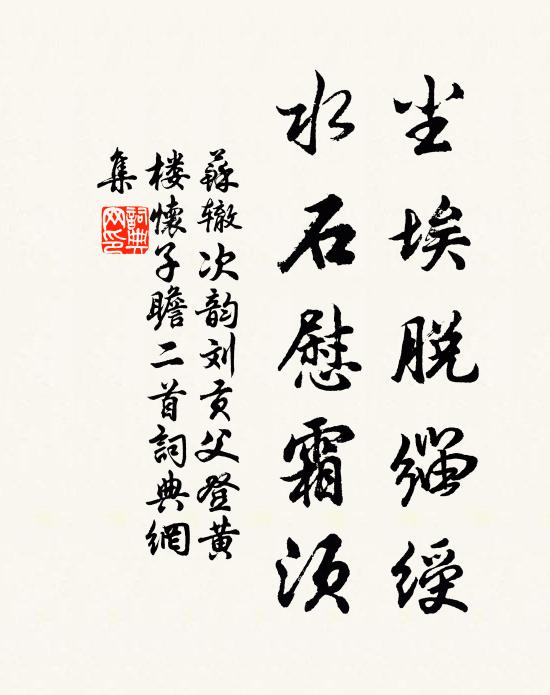 尘埃脱緇綬
水石慰霜须
蘇辙次韵刘贡父登黄
楼懷子瞻二首詞典網
集
詞典网印